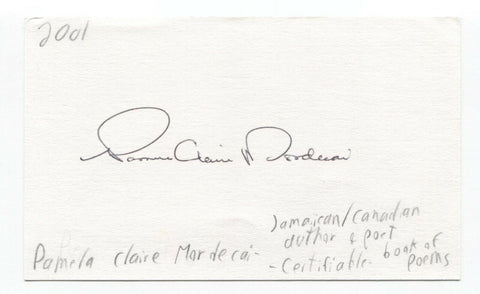 2001
Pamela Claire Mordecai
Jamaican/Canadian
author & poet
- Certifiable - book of
poems
Pamela Claire Mordecai -